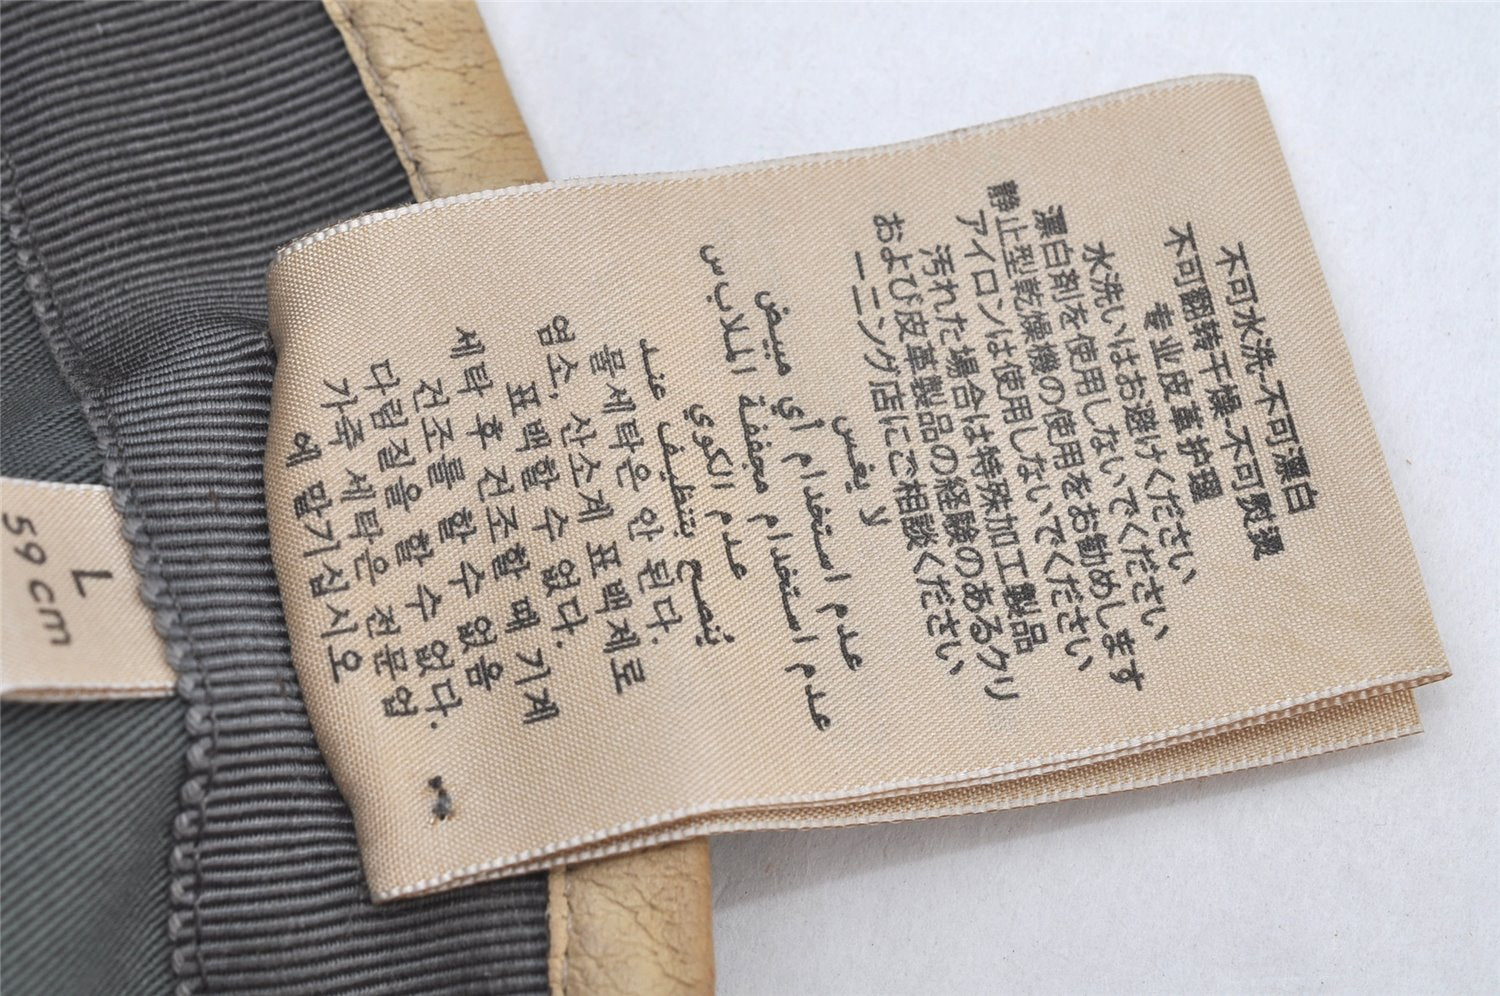 不可水洗-不可漂白
不可翻转干燥-不可熨烫
专业皮革护理
水洗いはお避けください
漂白剤を使用しないでください
静止型乾燥機の使用をお勧めします
アイロンは使用しないでください
汚れた場合は特殊加工製品
および皮革製品の経験のあるクリ
ーニング店にご相談ください
لا يغسل
عدم استخدام أي مبيض
عدم استخدام مجففة الملابس
عدم الكوي
ينصح بتنظيف عند
물세탁은 안 된다.
염소, 산소계 표백제로
표백할 수 없다.
세탁 후 건조할 때 기계
건조를 할 수 없음
다림질을 할 수 없다.
가죽 세탁은 전문업
에 맡기십시오
L
59cm